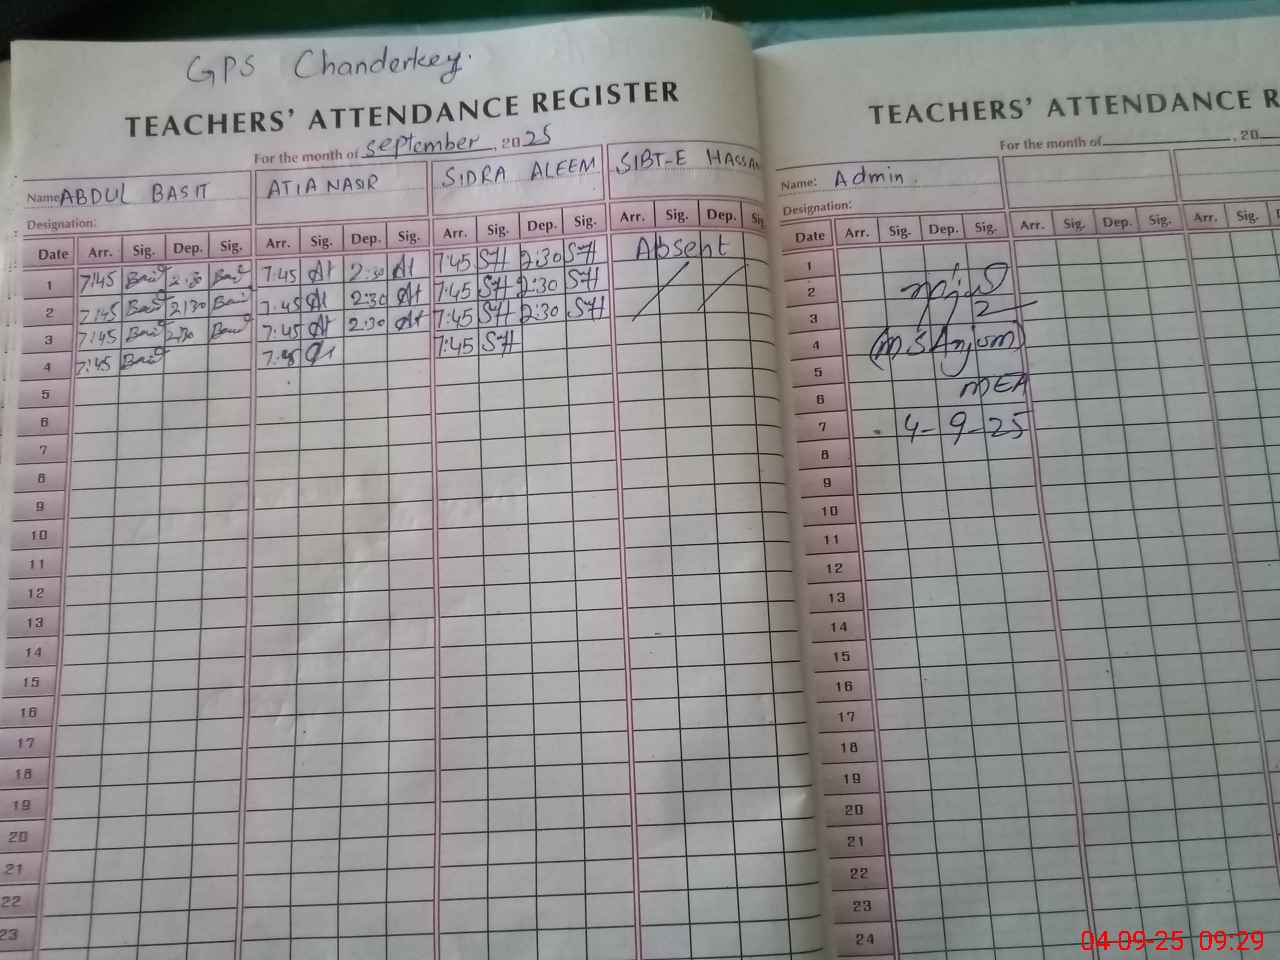 GPS Chanderkey.
TEACHERS' ATTENDANCE REGISTER
For the month of September, 2025
Name ABDUL BASIT ATIA NASIR SIDRA ALEEM SIBT-E HASSAN
Designation:
Date Arr. Sig. Dep. Sig. Arr. Sig. Dep. Sig. Arr. Sig. Dep. Sig. Arr. Sig. Dep. Sig
1 7:45 Basit 2:30 Basit 7:45 At 2:30 At 7:45 SH 2:30 SH Absent
2 7:45 Basit 2:30 Basit 7:45 At 2:30 At 7:45 SH 2:30 SH
3 7:45 Basit 2:30 Basit 7:45 At 2:30 At 7:45 SH 2:30 SH
4 7:45 Basit 7:45 At 7:45 SH
5
6
7
8
9
10
11
12
13
14
15
16
17
18
19
20
21
22
23
TEACHERS' ATTENDANCE R
For the month of , 20
Name: Admin.
Designation:
Date Arr. Sig. Dep. Sig. Arr. Sig. Dep. Sig. Arr. Sig.
1
2
3
4 (M S Anjum)
5
6 MEA
7 4-9-25
8
9
10
11
12
13
14
15
16
17
18
19
20
21
22
23
24
04-09-25 09:29